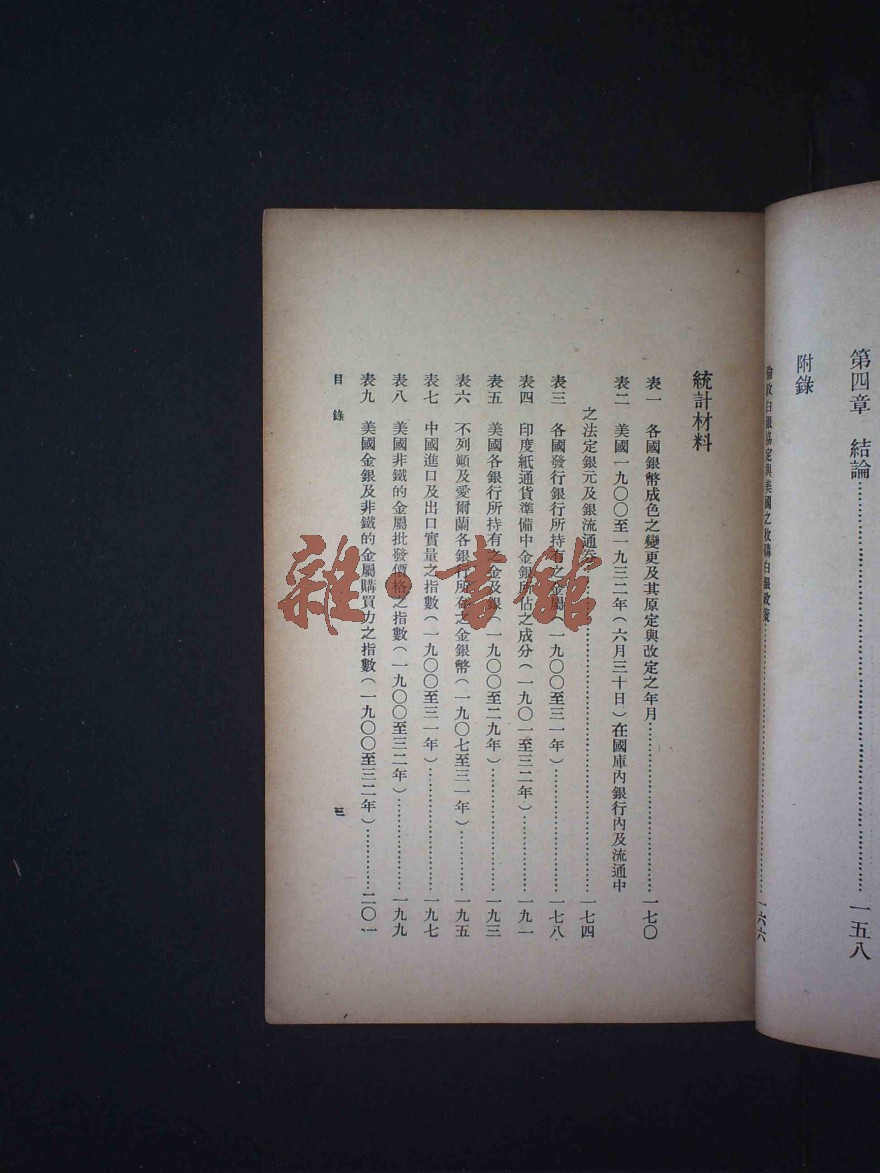 第四章　結論……一五八
附錄
倫敦白銀協定與美國之收購白銀政策……一六六
統計材料
表一　各國銀幣成色之變更及其原定與改定之年月……一七〇
表二　美國一九〇〇至一九三二年（六月三十日）在國庫內銀行內及流通中
之法定銀元及銀流通券……一七四
表三　各國發行銀行所持有之金屬（一九〇〇至三一年）……一七八
表四　印度紙通貨準備中金銀所佔之成分（一九〇一至三二年）……一九一
表五　美國各銀行所持有之金及銀（一九〇〇至二九年）……一九三
表六　不列顛及愛爾蘭各銀行所存之金銀幣（一九〇七至三一年）……一九五
表七　中國進口及出口實量之指數（一九〇〇至三一年）……一九七
表八　美國非鐵的金屬批發價格之指數（一九〇〇至三二年）……一九九
表九　美國金銀及非鐵的金屬購買力之指數（一九〇〇至三二年）……二〇一
目錄
三
雜·書館